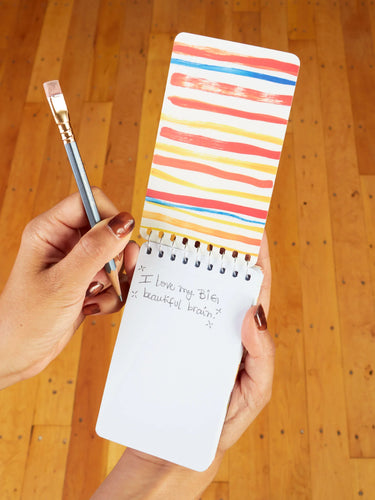 I love my BIG
beautiful brain!